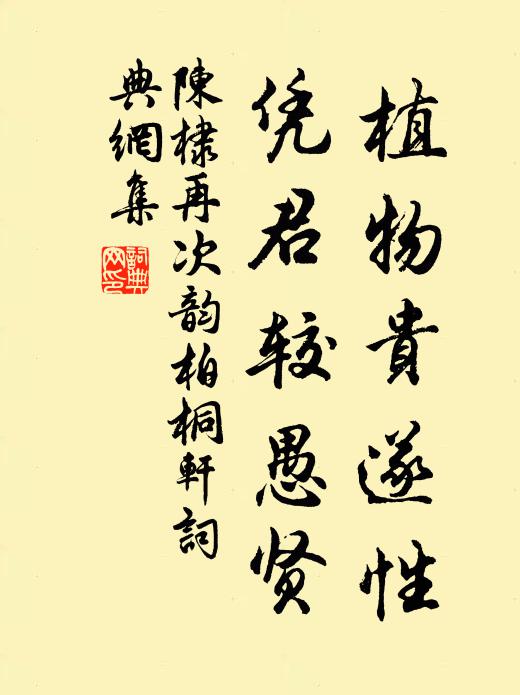 植物貴遂性
凭君较愚贤
陳棣再次韵柏桐軒詞
典網集
詞典
网印